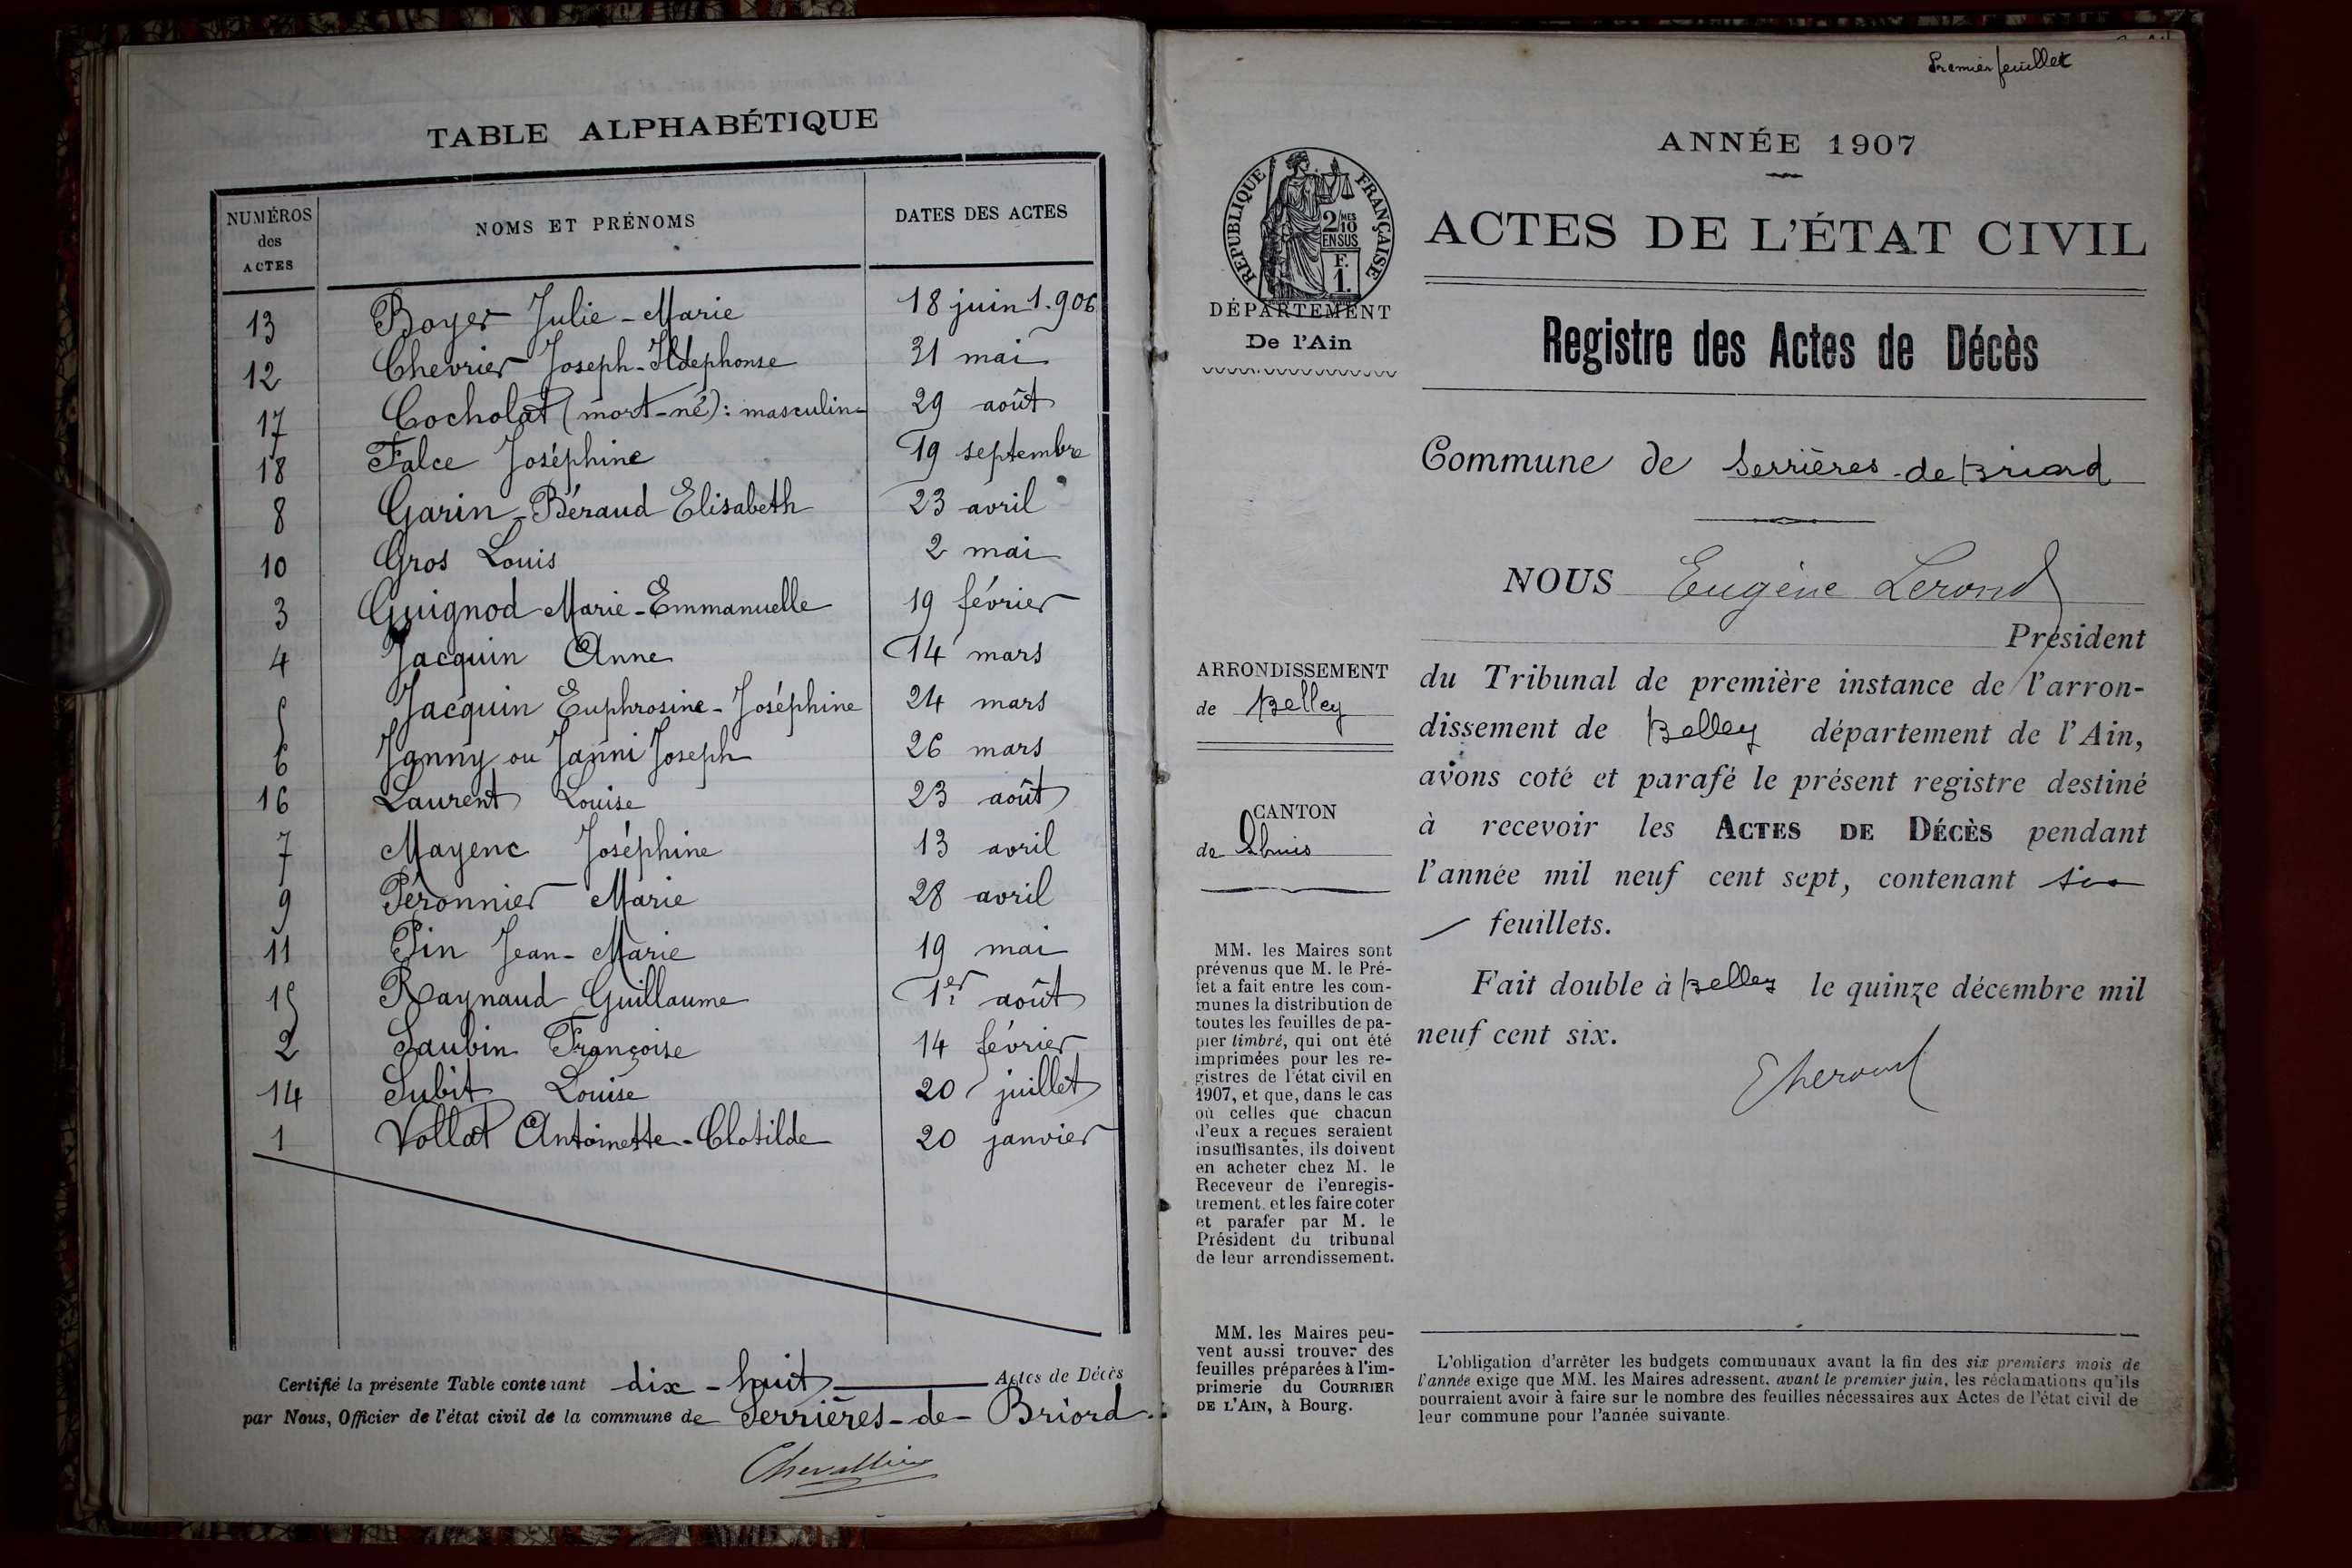 TABLE ALPHABÉTIQUE
NUMÉROS des ACTES NOMS ET PRÉNOMS DATES DES ACTES
13 Boyer Julie-Marie 18 juin 1.906
12 Chevrier Joseph-Ildephonse 31 mai
17 Cocholat (mort-né): masculin 29 août
18 Falce Joséphine 19 septembre
8 Garin-Béraud Elisabeth 23 avril
10 Gros Louis 2 mai
3 Guignod Marie-Emmanuelle 19 février
4 Jacquin Anne 14 mars
5 Jacquin Euphrosine-Joséphine 24 mars
6 Janny ou Janni Joseph 26 mars
16 Laurent Louise 23 août
7 Mayenc Joséphine 13 avril
9 Péronnier Marie 28 avril
11 Pin Jean-Marie 19 mai
15 Raynaud Guillaume 1er août
2 Saubin Françoise 14 février
14 Subit Louise 20 juillet
1 Vollat Antoinette-Clotilde 20 janvier
Certifié la présente Table contenant dix-huit Actes de Décès
par Nous, Officier de l'état civil de la commune de Serrières-de-Briord.
Premier feuillet
ANNÉE 1907
RÉPUBLIQUE FRANÇAISE
2/10 MES
EN SUS
F.
1.
DÉPARTEMENT
De l'Ain
ACTES DE L'ÉTAT CIVIL
Registre des Actes de Décès
Commune de Serrières-de-Briord
NOUS Eugène Lerond
Président
ARRONDISSEMENT
de Belley
du Tribunal de première instance de l'arron-
dissement de Belley département de l'Ain,
avons coté et parafé le présent registre destiné
à recevoir les ACTES DE DÉCÈS pendant
l'année mil neuf cent sept, contenant six
feuillets.
Fait double à Belley le quinze décembre mil
neuf cent six.
CANTON
de Lhuis
MM. les Maires sont
prévenus que M. le Pré-
fet a fait entre les com-
munes la distribution de
toutes les feuilles de pa-
pier timbré, qui ont été
imprimées pour les re-
gistres de l'état civil en
1907, et que, dans le cas
où celles que chacun
d'eux a reçues seraient
insuffisantes, ils doivent
en acheter chez M. le
Receveur de l'enregis-
trement. et les faire coter
et parafer par M. le
Président du tribunal
de leur arrondissement.
MM. les Maires peu-
vent aussi trouver des
feuilles préparées à l'im-
primerie du COURRIER
DE L'AIN, à Bourg.
L'obligation d'arrêter les budgets communaux avant la fin des six premiers mois de
l'année exige que MM. les Maires adressent, avant le premier juin, les réclamations qu'ils
pourraient avoir à faire sur le nombre des feuilles nécessaires aux Actes de l'état civil de
leur commune pour l'année suivante.